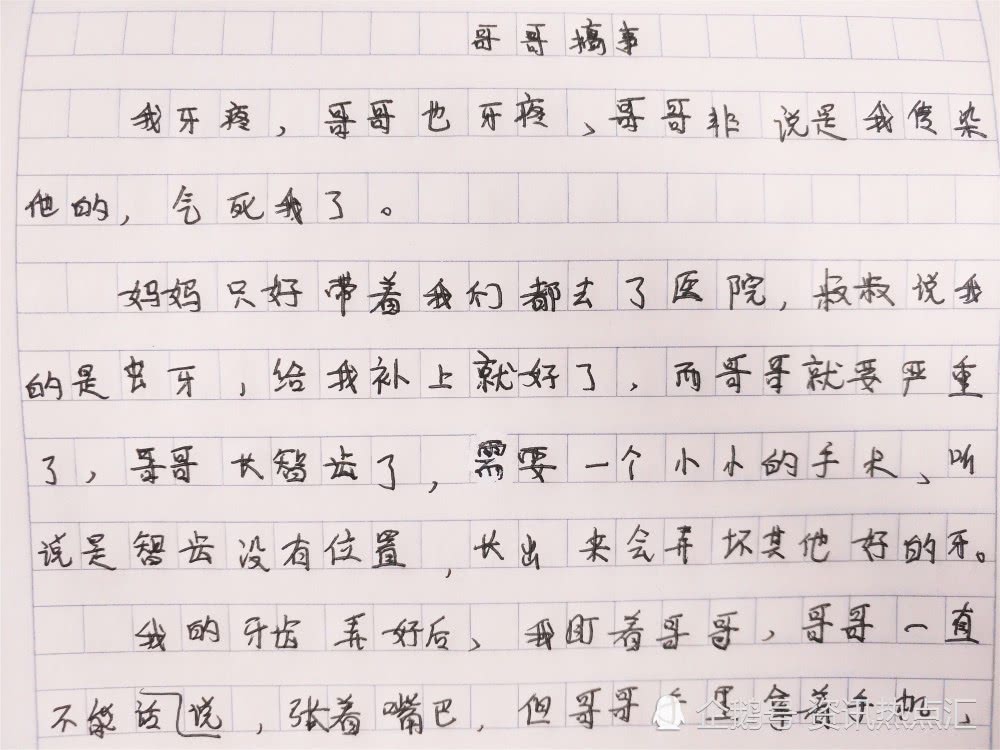 哥哥搞事
我牙疼，哥哥也牙疼，哥哥非说是我传染
他的，气死我了。
妈妈只好带着我们都去了医院，叔叔说我
的是虫牙，给我补上就好了，而哥哥就要严重
了，哥哥长智齿了，需要一个小小的手术、听
说是智齿没有位置，长出来会弄坏其他好的牙。
我的牙齿弄好后、我盯着哥哥，哥哥一直
不能话说，张着嘴巴，但哥哥手里拿着手机、
企鹅号 资讯热点汇